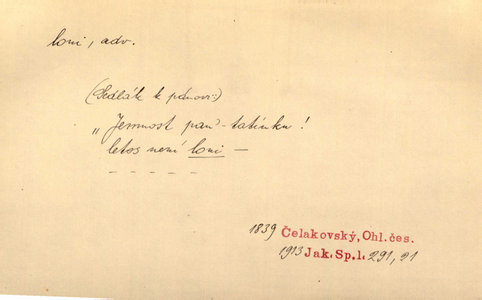 loni, adv.
(Sedlák k pánovi:)
„Jemnost pan'-tatínku!
letos není loni —
— — — — —
1839 Čelakovský, Ohl. čes.
1913 Jak. Sp. l. 291, 21